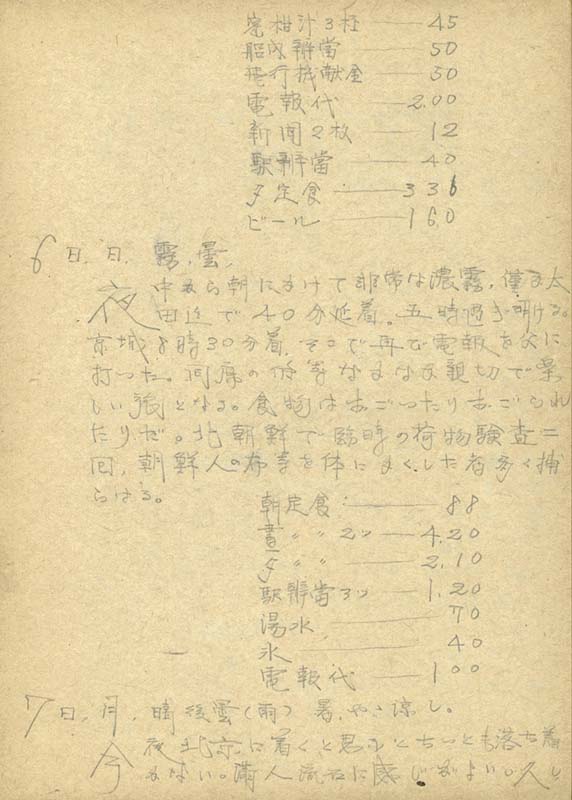 蜜柑汁3杯 —— 45
船内辨當 —— 50
飛行機献金 —— 50
電報代 —— 2.00
新聞2枚 —— 12
駅辨當 —— 40
夕定食 —— 336
ビール —— 160
6日,日, 霧,曇,
夜中から朝にかけて非常な濃霧,
田迄で40分延着。五時過ぎ明ける。
京城8時30分着,そこで再び電報を父に
打った。同席の 親切で楽
しい旅となる。食物はおごったりおごられ
たりだ。北朝鮮で臨時の荷物験査二
回,朝鮮人の布等を体にまくした者多く捕
らはる。
朝定食 —— 88
晝〃〃 2ツ —— 4.20
夕〃〃 —— 2.10
駅辨當3ツ —— 1.20
湯水 —— 70
氷 —— 40
電報代 —— 100
7日,月, 晴後雲(雨) 暑,やゝ涼し。
今夜北京に着くと思ふとちっとも落ち着
かない。満人 に感じがよい。久し